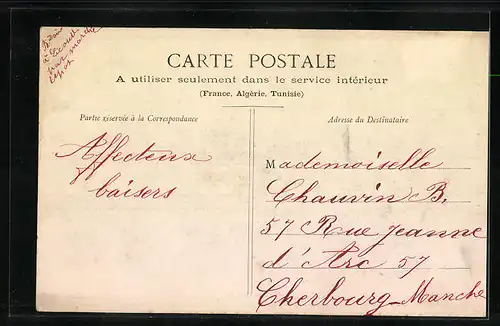 CARTE POSTALE
A utiliser seulement dans le service intérieur
(France, Algérie, Tunisie)
Partie réservée à la Correspondance
Adresse du Destinataire
Affectueux
baisers
Mademoiselle
Chauvin B.
57 Rue Jeanne
d'Arc 57
Cherbourg-Manche